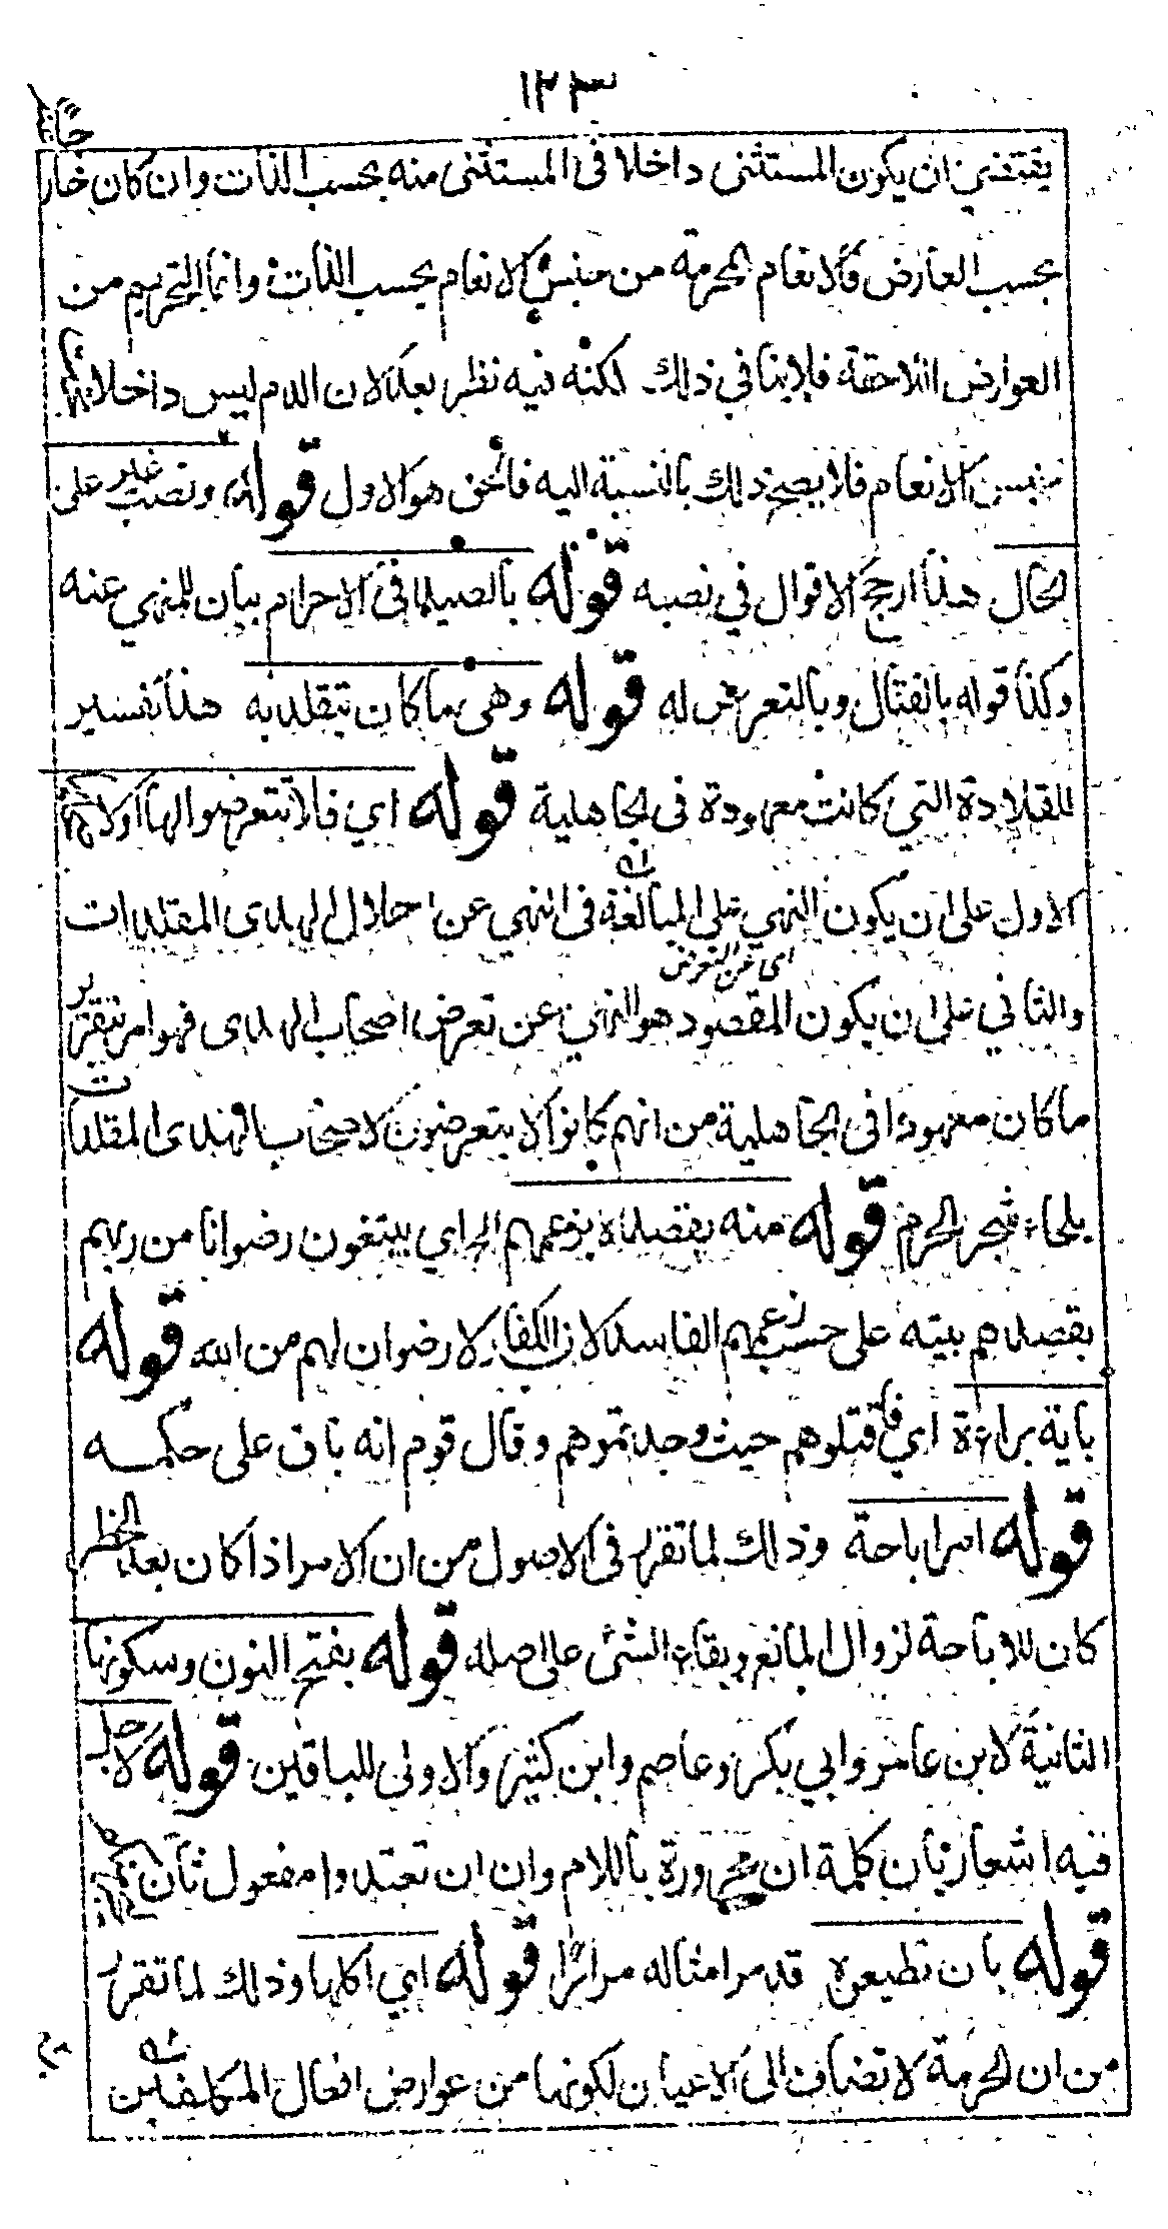 ١٢٣
يقتضي ان يكون المستثنى داخلا فى المستثنى منه بحسب الذات وان كان خارجا
بحسب العارض فالانعام المحرمة من جنس الانعام بحسب الذات وانما التحريم من
العوارض اللاحقة فلا ينافي ذلك لكنه فيه نظر بعد لان الدم ليس داخلا
جنس الانعام فلا يصح ذلك بالنسبة اليه فالحق هو الاول قوله ونصب غير على
الحال هذا ارجح الاقوال في نصبه قوله بالصيد فى الاحرام بيان للمنهي عنه
وكذا قوله بالقتال وبالتعرض له قوله وهى ما كان يتقلد به هذا تفسير
للقلادة التي كانت معهودة فى الجاهلية قوله اي فلا تتعرضوا لها او لاصحابها
الاول على ان يكون النهي على المبالغة فى النهي عن احلال الهدى المقلدات
اى عن التعرض
والثاني على ان يكون المقصود هو النهي عن تعرض اصحاب الهدى فهو امر بتقرير
ما كان معهودا فى الجاهلية من انهم كانوا لا يتعرضون لاصحاب الهدى المقلدات
بلحاء شجر الحرم قوله منه بقصده بزعمهم الخ اي يبتغون رضوانا من ربهم
بقصدهم بيته على حسب زعمهم الفاسد لان الكفار لا رضوان لهم من الله قوله
باية براءة اي فاقتلوهم حيث وجدتموهم وقال قوم انه باق على حكمه
قوله امر اباحة وذلك لما تقرر فى الاصول من ان الامر اذا كان بعد الحظر
كان للاباحة لزوال المانع وبقاء الشئ على اصله قوله بفتح النون وسكونها
الثانية لابن عامر وابي بكر وعاصم وابن كثير والاولى للباقين قوله لاجل
فيه اشعار بان كلمة ان مجرورة باللام وان ان تعتدوا مفعول ثان
قوله بان تطيعوه قد مر امثاله مرارا قوله اي اكلها وذلك لما تقرر
من ان الحرمة لا تضاف الى الاعيان لكونها من عوارض افعال المكلفين